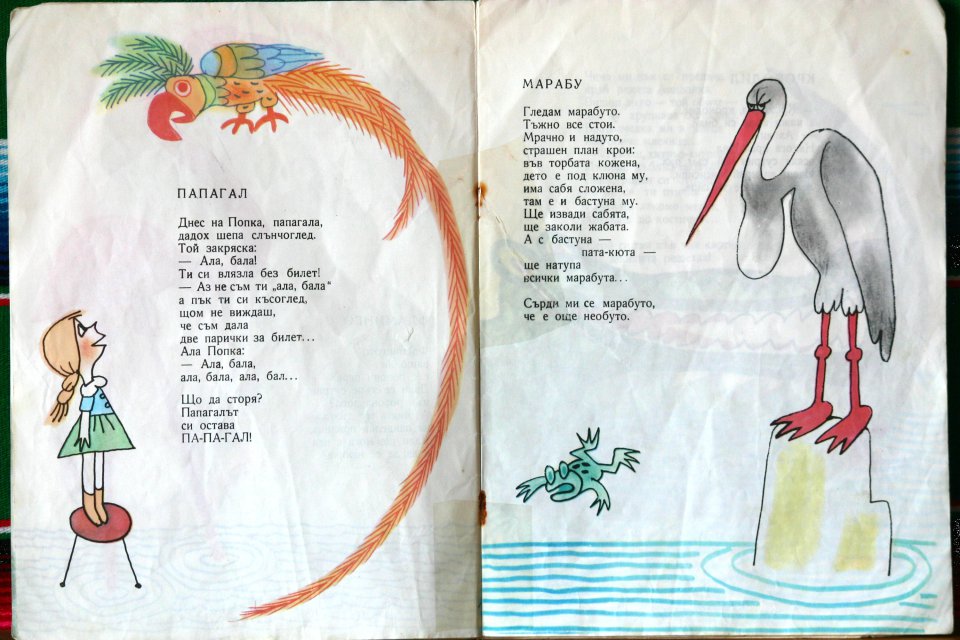 ПАПАГАЛ
Днес на Попка, папагала,
дадох шепа слънчоглед.
Той закряска:
— Ала, бала!
Ти си влязла без билет!
— Аз не съм ти „ала, бала“
а пък ти си късоглед,
щом не виждаш,
че съм дала
две парички за билет...
Ала Попка:
— Ала, бала,
ала, бала, ала, бал...
Що да сторя?
Папагалът
си остава
ПА-ПА-ГАЛ!
МАРАБУ
Гледам марабуто.
Тъжно все стои.
Мрачно и надуто,
страшен план крои:
във торбата кожена,
дето е под клюна му,
има сабя сложена,
там е и бастуна му.
Ще извади сабята,
ще заколи жабата.
А с бастуна —
пата-кюта —
ще натупа
всички марабута...
Сърди ми се марабуто,
че е още необуто.